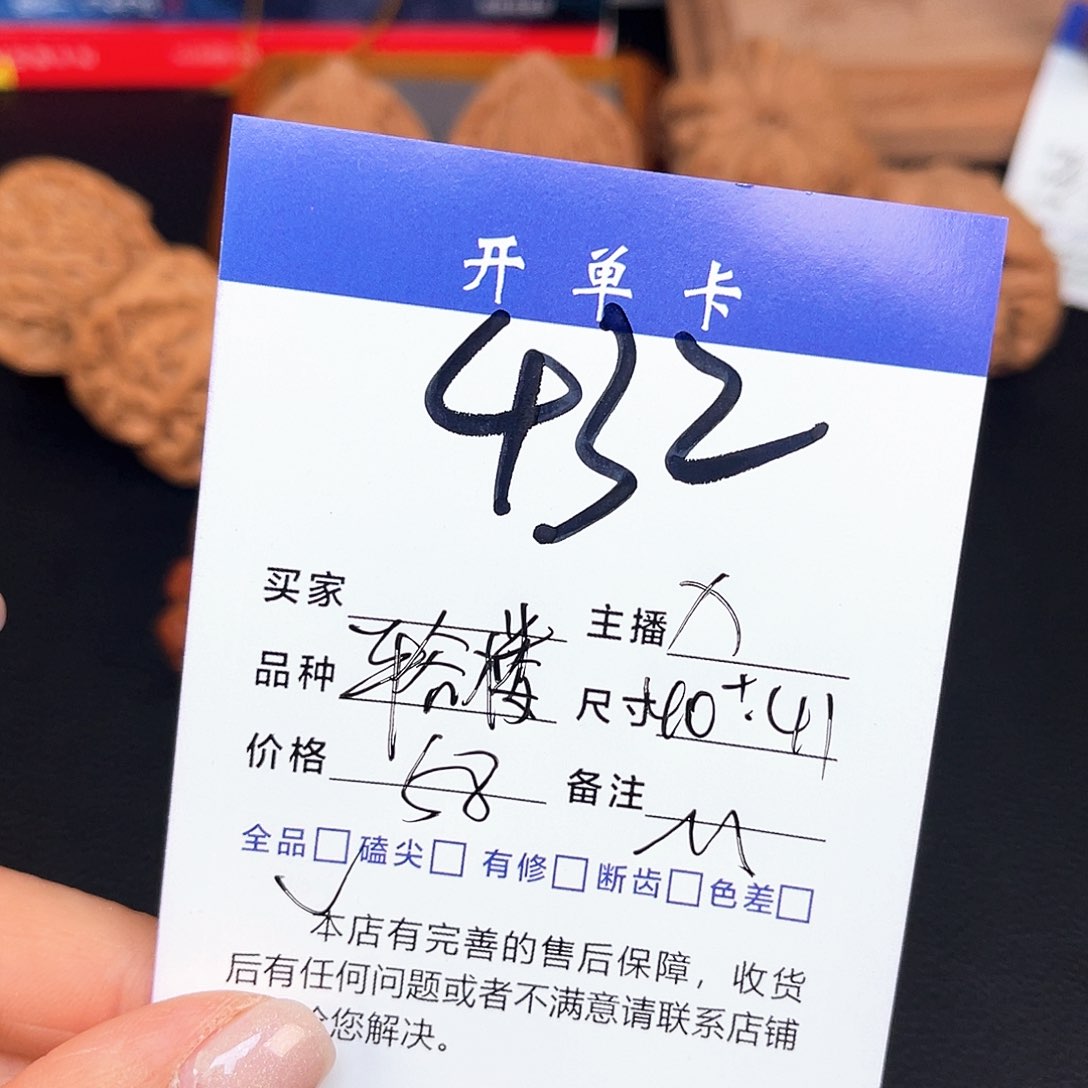 开单卡
432
买家 主播
品种 尺寸 40+.41
价格 58 备注
全品□ 磕尖□ 有修□ 断齿□ 色差□
本店有完善的售后保障，收货
后有任何问题或者不满意请联系店铺
您解决。